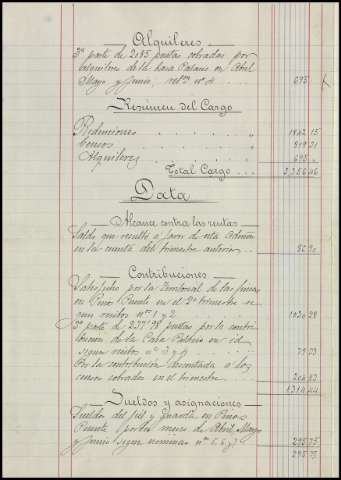 Alquileres
3ª parte de 2085 pesetas cobradas por
alquileres de la Casa Palacio en Abril
Mayo y Junio, nº 4 695
Resúmen del Cargo
Redenciones 1842,15
Censos 819,31
Alquileres 695
Total Cargo 3,356,46
Data
Alcance contra las rentas
Saldo que resultó a favor de esta Admon
en la cuenta del trimestre anterior
Contribuciones
Satisfecho por la Territorial de las fincas
en Pino Puente en el 2º trimestre se
gun recibos nºs 1 y 2
3ª parte de 237'78 pesetas por la contri
bucion de la Casa Palacio en id.
segun recibos nº 3 y 4
Por la contribución descontada a los
censos cobrados en el trimestre
1314,44
Sueldos y asignaciones
Sueldos del jefe y Guarda en Pinos
Puente por los meses de Abril, Mayo
y Junio segun nominas nº 5, 6 y 7 295,75
295,75